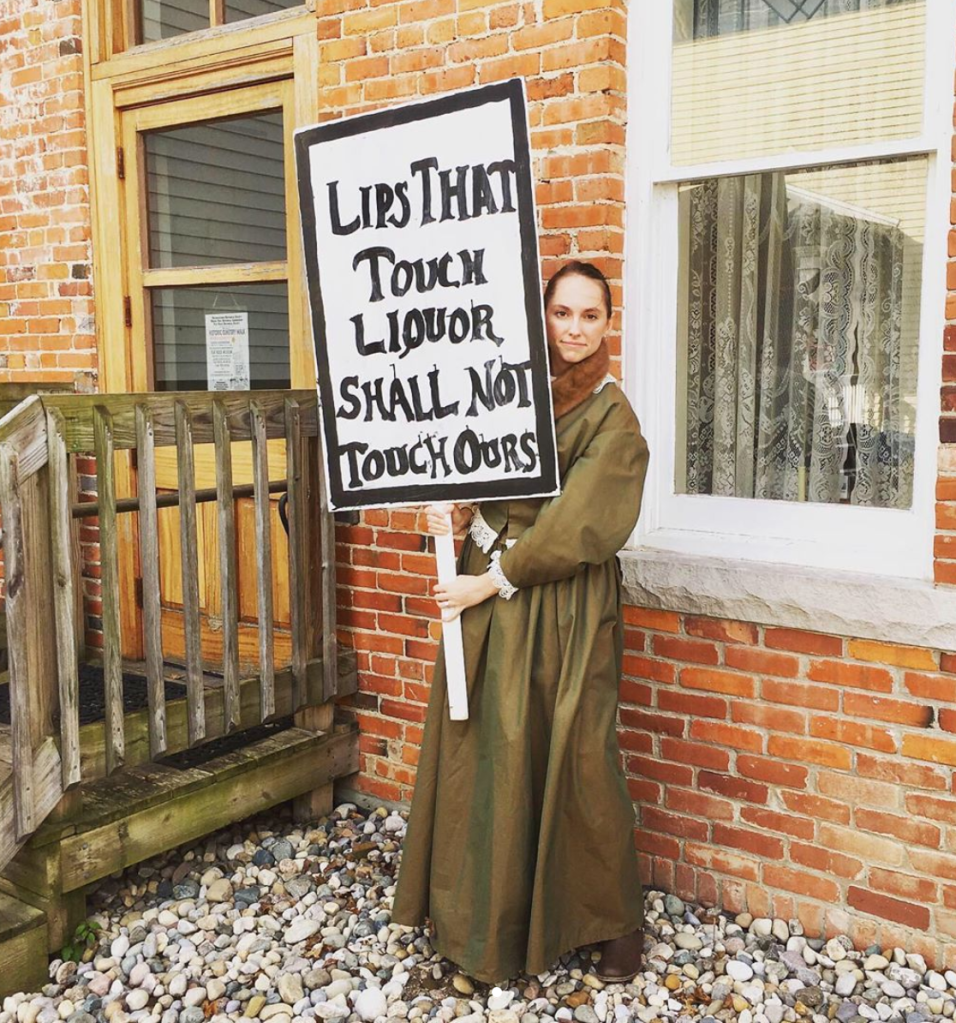 LIPS THAT
TOUCH
LIQUOR
SHALL NOT
TOUCH OURS